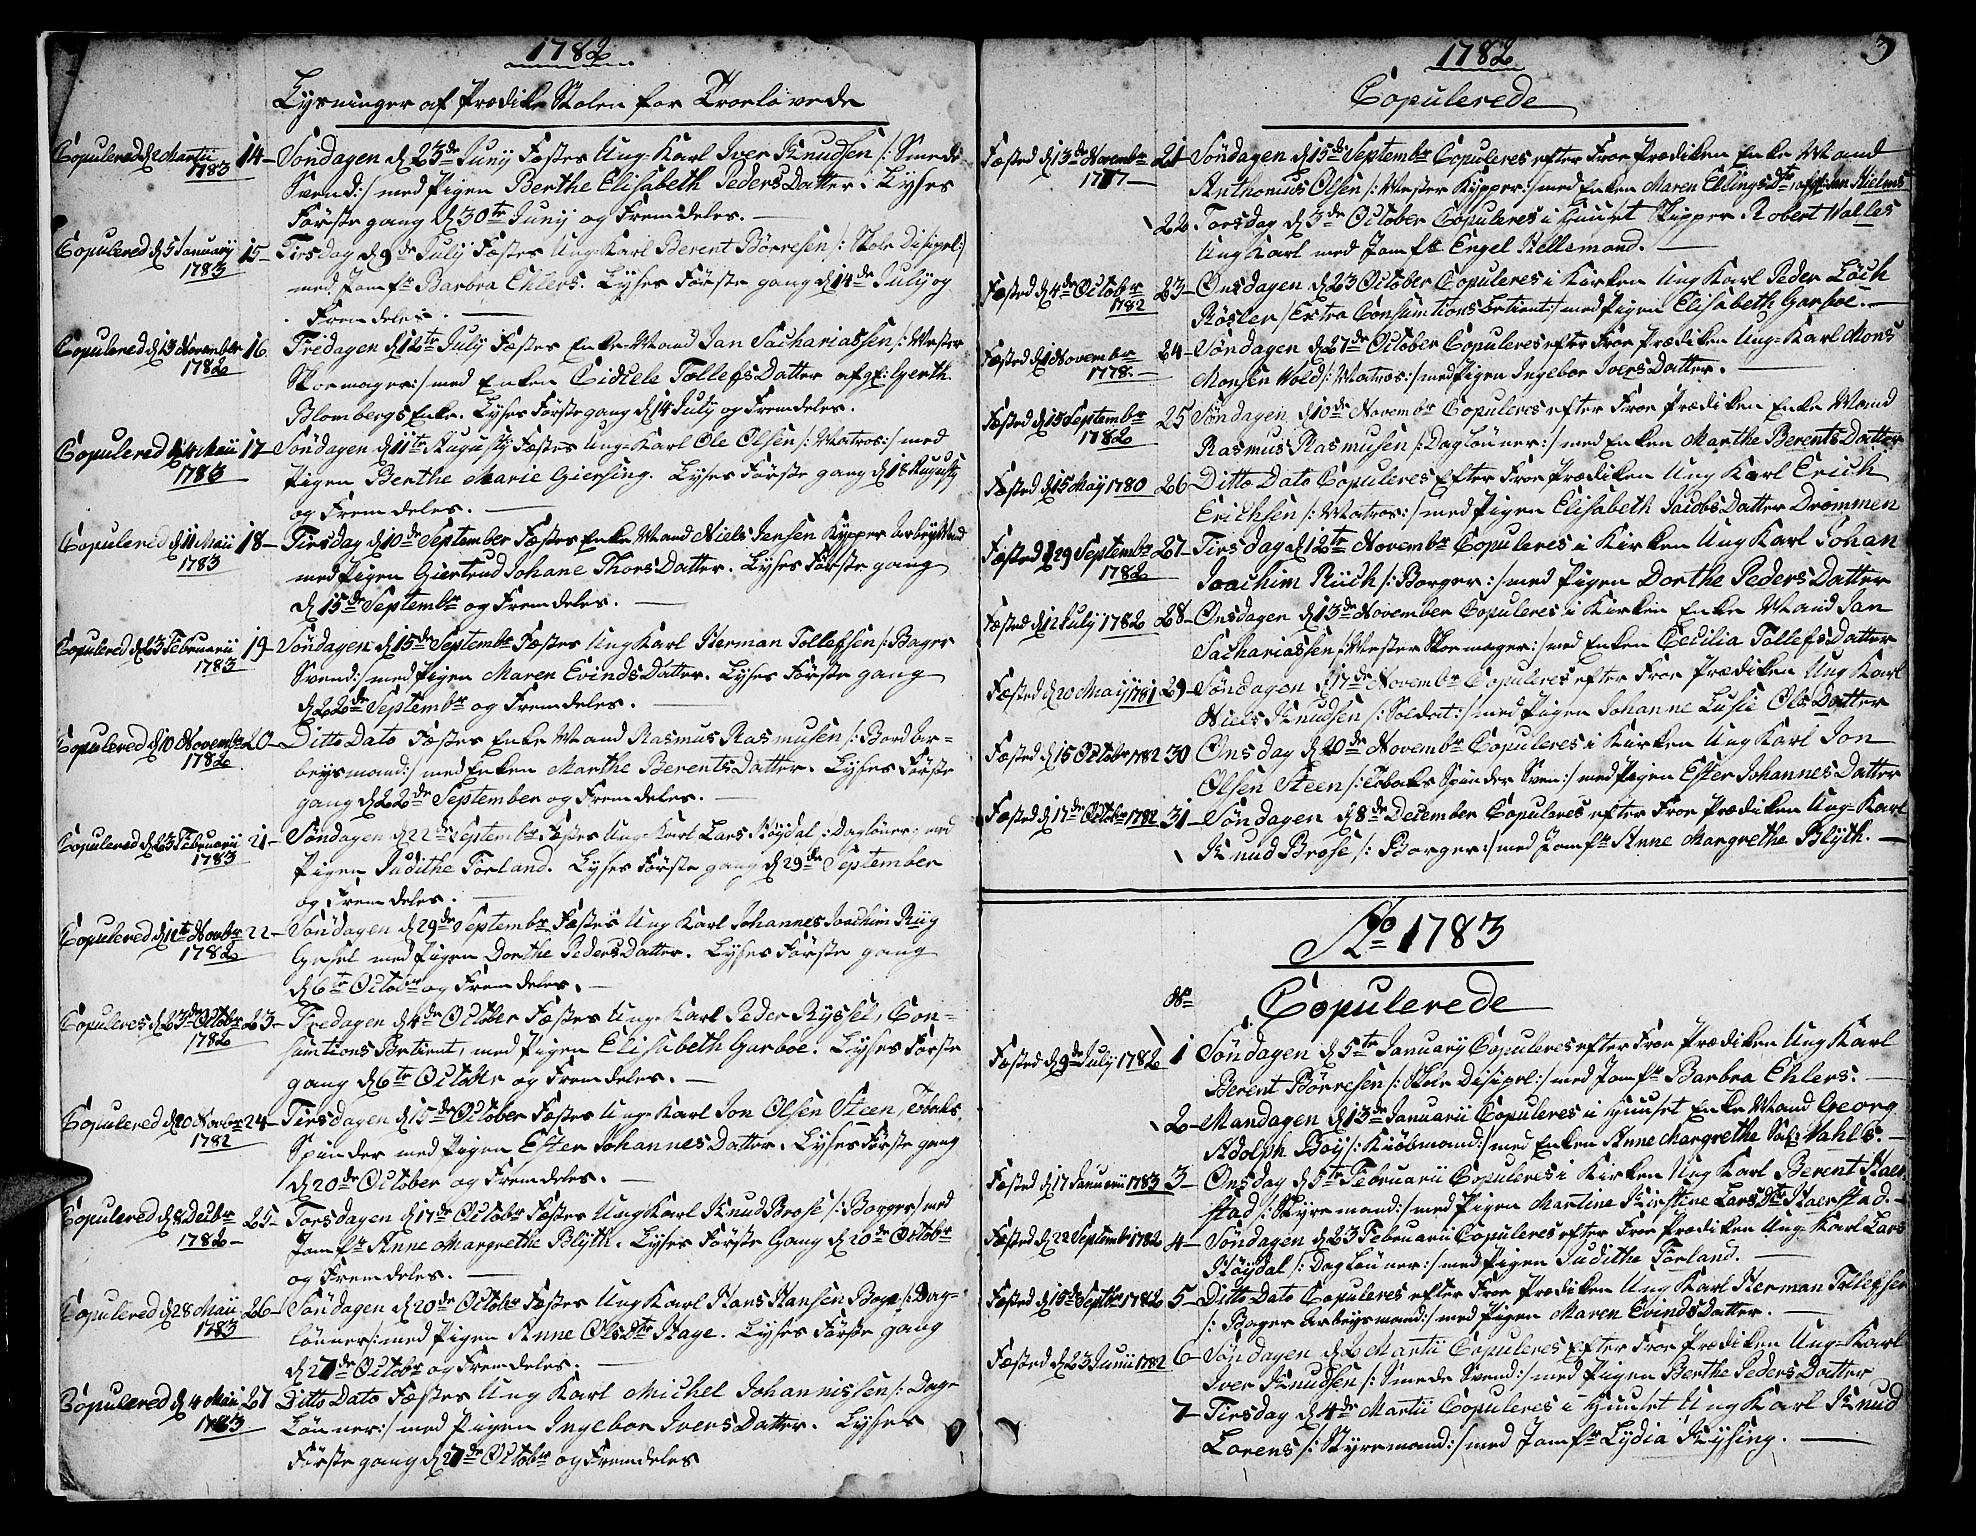 1782
Lysninger af Prædike Stolen for Troelovede
Copulered d 2 Martii 1783 14- Søndagen d 23de Junij Fæstes Ung-Karl Iver Knudsen /: Smede
Svend:/ med Pigen Berthe Elisabeth PedersDatter: Lyses
Første gang d 30te Junij og Fremdeles.
Copulered d 5 January 1783 15- Tirsdag d 9de July Fæstes Ung-Karl Berent Børresen /: Skole Disipel:/
med Jomfr Barbra Ehlers. Lyses Første gang d 14de July og
Fremdeles.
Copulered d 13 November 1782 16. Fredagen d 12te July Fæstes Enke-Mand Jan Sachariassen /: Mester
Skoemager:/ med Enken Cidsele TollefsDatter afgf: Gerth
Blombergs Enke. Lyses Første gang d 14 July og Fremdeles.
Copulered d 4 Maii 1783 17- Søndagen d 11te Augusty Fæstes Ung-Karl Ole Olsen /: Matros:/ med
Pigen Berthe Marie Giersing. Lyses Første gang d 18 Augusty
og Fremdeles.
Copulered d 11 Maii 1783 18- Tirsdag d 10de September Fæstes Enke-Mand Niels Jensen Kypper Arbeyd
med Pigen Giertrud Johane ThorsDatter. Lyses Første gang
d 15de Septembr og Fremdeles.
Copulered d 23 Februarii 1783 19- Søndagen d 15de Septembr Fæstes Ung Karl Herman Tollefsen /: Bager
Svend:/ med Pigen Maren EvindsDatter. Lyses Første gang
d 22de Septembr og Fremdeles.
Copulered d 10 Novembr 1782 20- Ditto Dato Fæstes Enke Mand Rasmus Rasmusen /: Bord Ar-
beysmand:/ med Enken Marthe BerentsDatter. Lyses Første
gang d 22de September og Fremdeles.
Copulered d 23 Februarii 1783 21- Søndagen d 22de Septembr Fæstes Ung-Karl Lars Høydal /: Dagløner: med
Pigen Judithe Førland. Lyses Første gang d 29de September
og Fremdeles.
Copulered d 12t Novbr 1782 22- Søndagen d 29de Septembr Fæstes Ung Karl Johannes Joachim Riig
Gesel med Pigen Dorthe PedersDatter. Lyses Første gang
d 6te Octobr og Fremdeles.
Copuleres d 23de Octobr 1782 23- Fredagen d 4de October Fæstes Ung-Karl Peder Ryssel, Con-
sumtions Betient, med Pigen Elisabeth Garboe. Lyses Første
gang d 6te October og Fremdeles.
Copulered d 20 Novbr 1782 24- Tirsdagen d 15de October Fæstes Ung-Karl Jon Olsen Steen, Tobaks
Spinder med Pigen Ester JohannesDatter. Lyses Første gang
d 20de October og Fremdeles.
Copulered d 8 Decbr 1782 25- Torsdagen d 17de Octobr Fæstes Ung Karl Knud Brose /: Borger/ med
Jomfr Anne Margrethe Blyth. Lyses Første Gang d 20de Octobr
og Fremdeles.
Copulered d 28 Maii 1783 26- Søndagen d 20de Octobr Fæstes Ung Karl Hans Hansen Boye /: Dag-
Lønner:/ med Pigen Anne OlsDtr Hage. Lyses Første gang
d 27de Octobr og Fremdeles.
Copulered d 4 Maii 1783 27 Ditto Dato Fæstes Ung Karl Michel Johannissen /: Dag-
Lønner:/ med Pigen Ingebor IversDatter. Lyses
Første gang d 27de Octobr og Fremdeles
3
1782
Copulerede
Fæsted d 13de Novembr 1777 21- Søndagen d 15de Septembr Copuleres efter Froe Prædiken Enke Mand
Anthonius Olsen /: Mester Kypper:/ med Enken Maren EllingsDtr, afgf: Jan Hielms
22- Torsdag d 3de October Copuleres i Huuset Skipper Robert Walles
Ung Karl med Jomfr Engel Hellemand.
Fæsted d 4de Octobr 1782 23- Onsdagen d 23 October Copuleres i Kirken Ung Karl Peder Löch
Røsler /: Extra Consumtions Betient:/ med Pigen Elisabeth Garboe.
Fæsted d 1 Novembr 1778. 24- Søndagen d 27de October Copuleres efter Froe Prædiken Ung-Karl Mons
Monsen Wold /: Matros:/ med Pigen Ingebor IversDatter.
Fæsted d 15 Septembr 1782 25 Søndagen d 10de Novembr Copuleres efter Froe Prædiken Enke Mand
Rasmus Rasmusen /: Daglønner:/ med Enken Marthe BerentsDatter
Fæsted d 15 May 1780 26 Ditto Dato Copuleres efter Froe Prædiken Ung Karl Erich
Erichsen /: Matros:/ med Pigen Elisabeth JacobsDatter Drømmen
Fæsted d 29 Septembr 1782 27- Tirsdag d 12te Novembr Copuleres i Kirken Ung Karl Johan
Joachim Riich /: Borger:/ med Pigen Dorthe PedersDatter
Fæsted d 12 July 1782 28- Onsdagen d 13de November Copuleres i Kirken Enke Mand Jan
Sachariassen /: Mester Skoemager:/ med Enken Cecilia TollefsDatter
Fæsted d 20 Maij 1781 29- Søndagen d 17de Novembr Copuleres efter Froe Prædiken Ung Karl
Niels Knudsen /: Soldat:/ med Pigen Johanne Lusie OlsDatter
Fæsted d 15 Octobr 1782 30 Onsdag d 20de Novembr Copuleres i Kirken Ung Karl Jon
Olsen Steen /: Tobaks Spinder Sven:/ med Pigen Ester JohannesDatter
Fæsted d 17de Octobr 1782 31- Søndagen d 8de December Copuleres efter Froe Prædiken Ung-Karl
Knud Brose /: Borger:/ med Jomfr Anne Margrethe Blÿth.
Ao 1783
No Copulerede
Fæsted d 9de July 1782 1 Søndagen d 5te January Copuleres efter Froe Prædiken Ung Karl
Berent Børresen /: Skole Disipel:/ med Jomfr Barbra Ehlers.
2- Mandagen d 13de Januarii Copuleres i Huuset Enke Mand Georg
Adolph Boy /: Kiøbmand:/ med Enken Anne Margrethe Sal: Wahls.
Fæsted d 17 Januarii 1783 3- Onsdag d 5te Februarii Copuleres i Kirken Ung Karl Berent Haer
stad /: Styremand:/ med Pigen Martine Kirstine LarsDtr Haerstad.
Fæsted d 22 Septembr 1782 4- Søndagen d 23 Februarii Copuleres efter Froe Prædiken Ung Karl Lars
Høydal /: DagLønner:/ med Pigen Judithe Førland.
Fæsted d 15d Septbr 1782 5- Ditto Dato Copuleres efter Froe Prædiken Ung Karl Herman Tollefsen
/: Bager Arbeysmand:/ med Pigen Maren EvindsDatter.
Fæsted d 23 Junii 1782 6- Søndagen d 2 Martii Copuleres efter Froe Prædiken Ung-Karl
Iver Knudsen /: Smede Svend:/ med Pigen Berthe PedersDatter
7- Tirsdag d 4de Martii Copuleres i Huuset Ung Karl Knud
Lorens /: Styremand:/ med Jomfr Lydia Kÿsing.